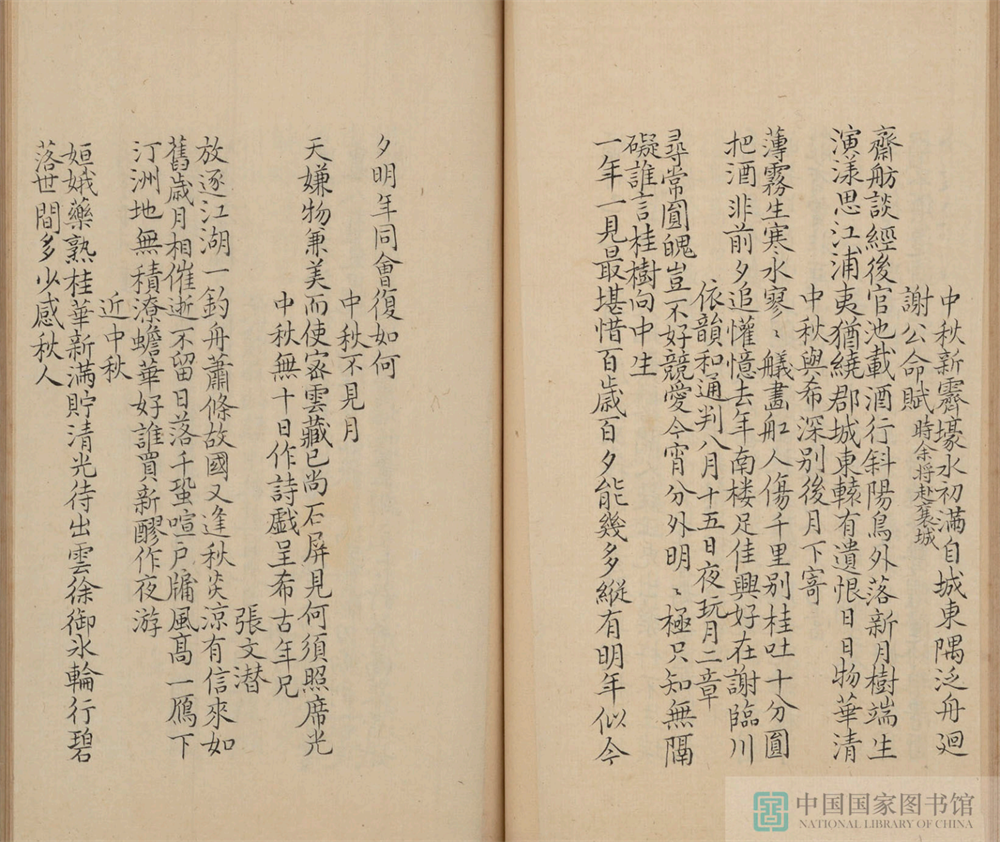 中秋新霽壕水初滿自城東隅泛舟廻
謝公命賦時余将赴襄城
齋舫談經後官池載酒行斜陽鳥外落新月樹端生
演漾思江浦夷猶繞郡城東轅有遺恨日日物華清
中秋與希深别後月下寄
薄霧生寒水寥〻艤畫舡人傷千里别桂吐十分圓
把酒非前夕追懽憶去年南楼足佳興好在謝臨川
依韻和通判八月十五日夜玩月二章
尋常圓魄豈不好競愛今宵分外明〻極只知無隔
礙誰言桂樹向中生
一年一見最堪惜百歲百夕能幾多縱有明年似今
夕明年同會復如何
中秋不見月
天嫌物兼美而使密雲藏已尚石屏見何須照席光
中秋無十日作詩戲呈希古年兄
張文潜
放逐江湖一釣舟蕭條故國又逢秋炎涼有信來如
舊歲月相催逝不留日落千蛩喧戸牖風髙一鴈下
汀洲地無積潦蟾華好誰買新醪作夜游
近中秋
姮娥藥熟桂華新滿貯清光待出雲徐御氷輪行碧
落世間多少感秋人
中国国家图书馆
NATIONAL LIBRARY OF CHINA